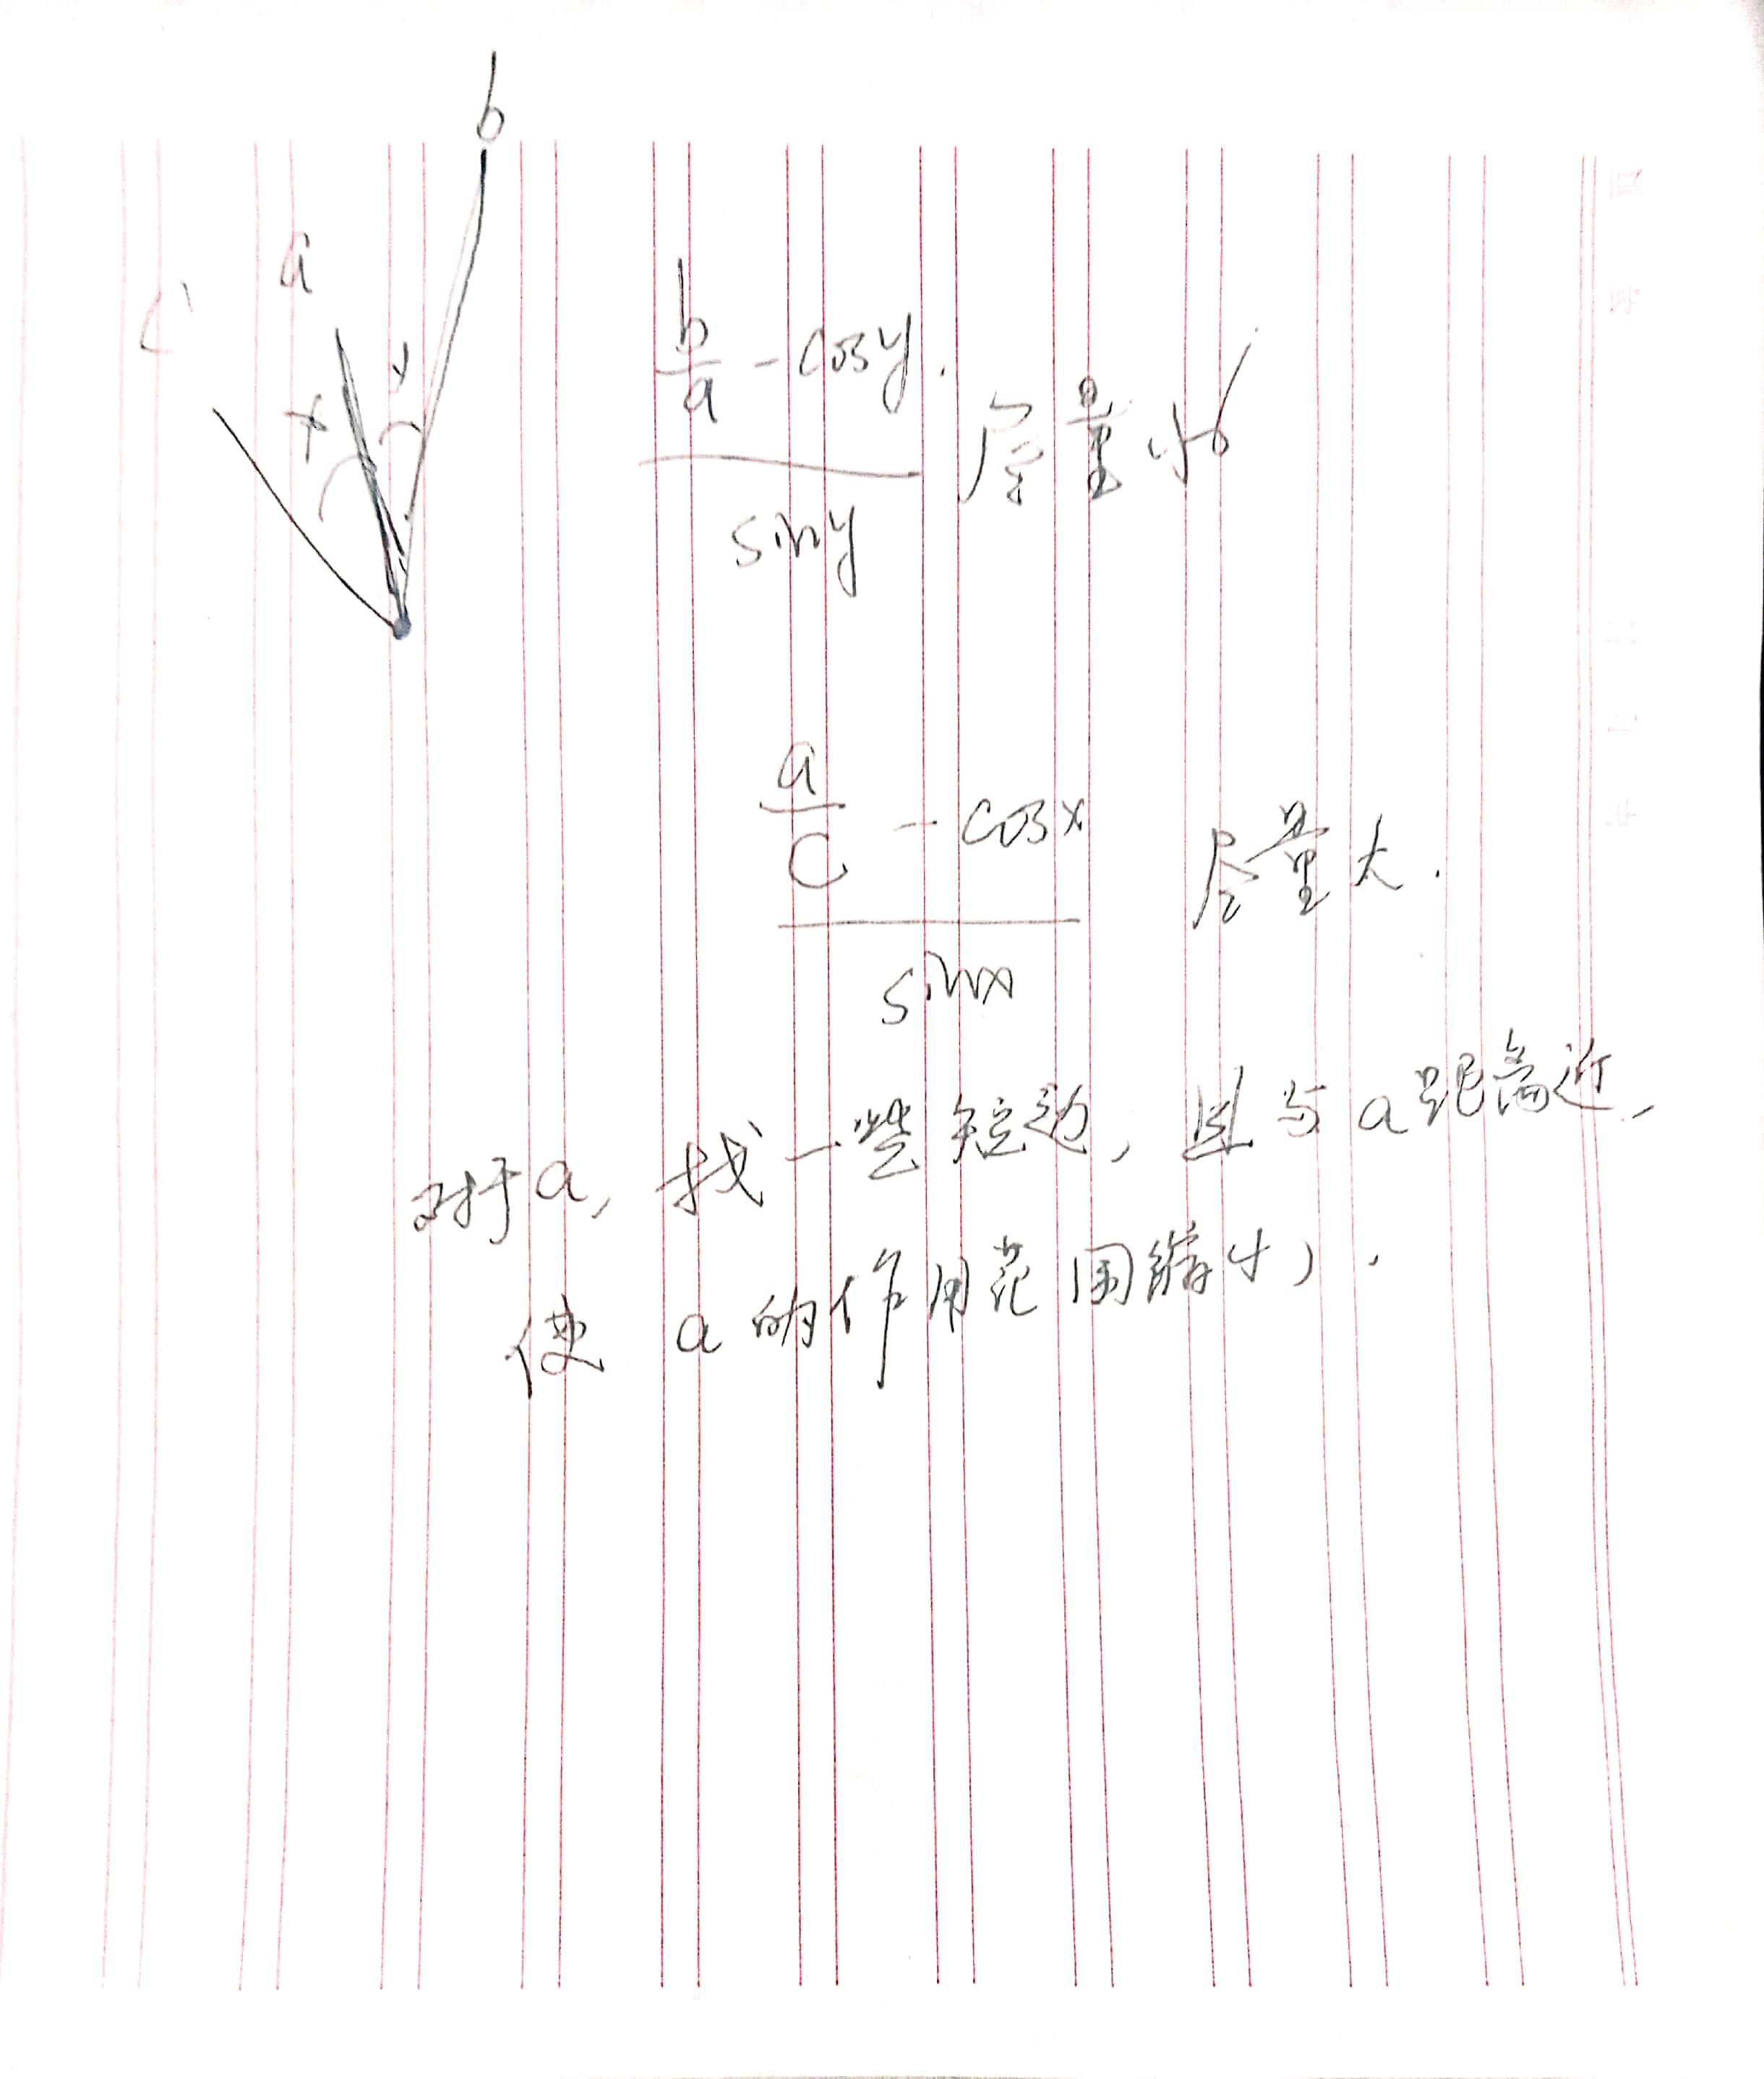 b
a
c
x
y
b/a - cosy.
siny
尽量小
a/c - cosx
sinx
尽量大.
对于a, 找一些短边, 且与a距离近,
使 a的作用范围缩小.